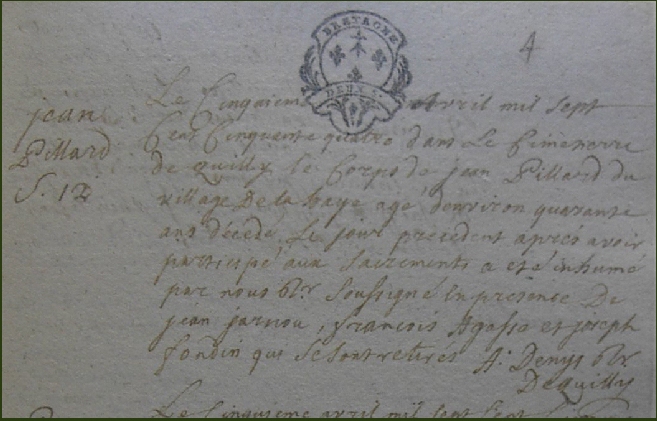 BRETAGNE
DEUX S.
4
jean
Pillard
S. 12
Le Cinqaieme avril mil Sept
Cent Cinquante quatre dans Le Cimeterre
de quilly le Corps de jean Pillard du
village De la haye agé denviron quarante
ans décédé Le jour precedent aprés avoir
participé aux Sacrements a eté inhumé
par nous Soussigné En presence De
jean jarnou, francois Agasse et joseph
fondin qui Se Sont retirés A: Denys
De quilly
Le Cinquieme avril mil Sept Cent